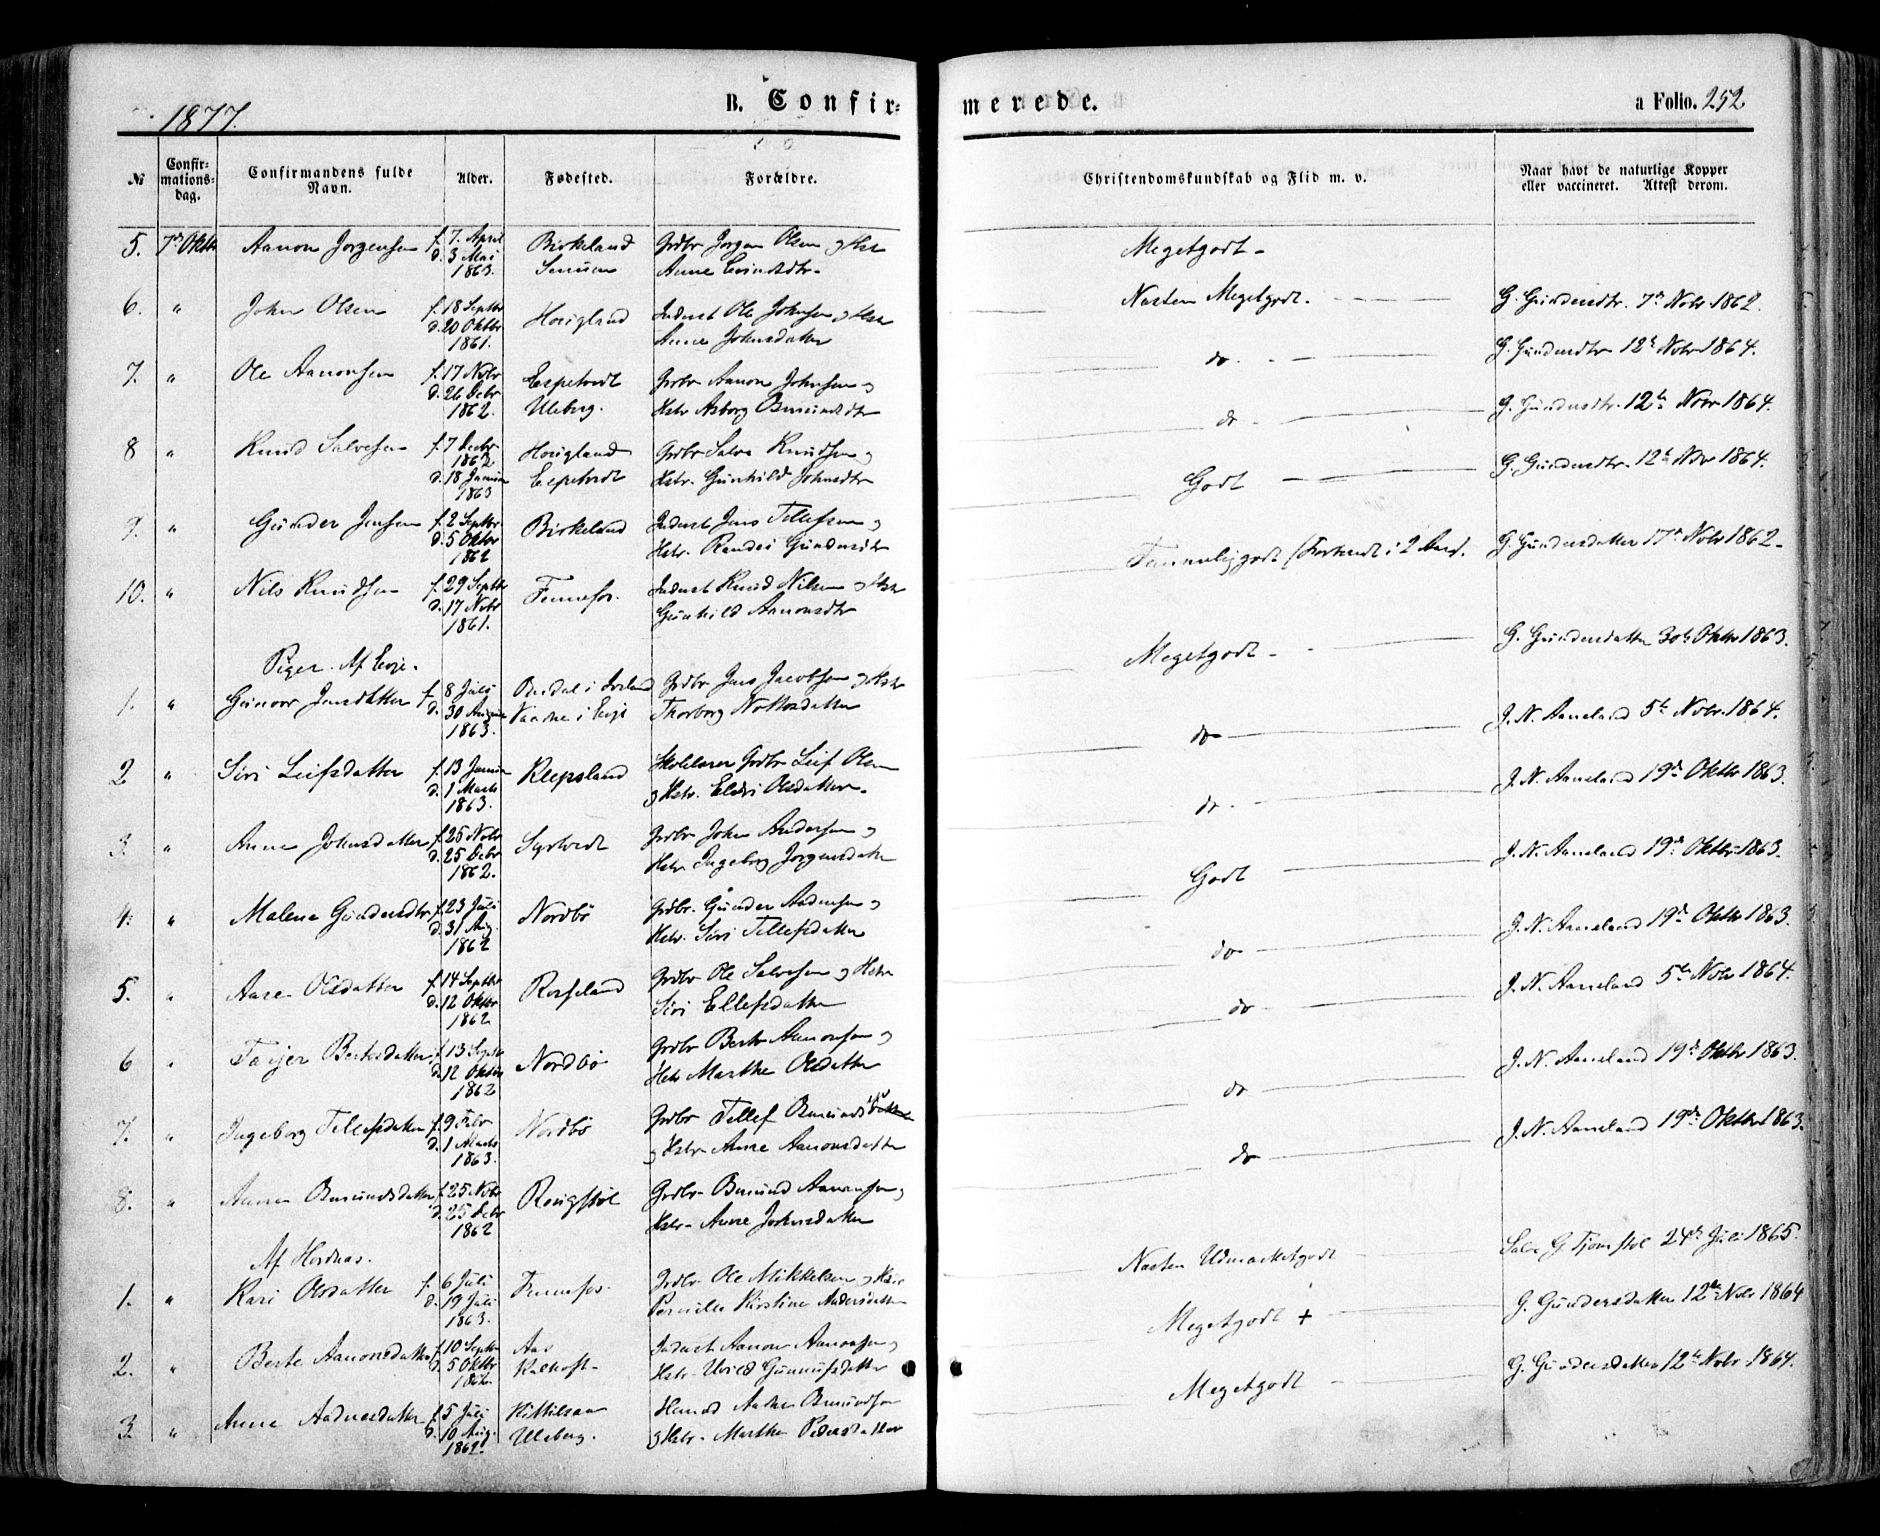 1877.
B. Confir-
merede.
a Folio. 252
№
Confir-
mations-
dag.
Confirmandens fulde
Navn.
Alder.
Fødested.
Forældre.
Christendomskundskab og Flid m. v.
Naar havt de naturlige Kopper
eller vaccineret. Attest derom.
5. 7de Oktbr Aanon Jorgensen f. 7. April Birkeland Grdbr Jorgen Olsen og Hstr Megetgodt -
d. 3 Mai
1863. Anne
6. " John Olsen f. 18 Septbr Houigland Inderst Ole Johnsen og Hstr Nasten Megetgodt. G. Gundersdtr. 7de Nobr 1862.
d. 20 Oktbr Anne Johnsdatter
1861.
7. " Ole Aanonsen f. 17 Nobr Espetvedt Grdbr Aanon Johnsen og do. G. Gundersdtr 12te Nobr 1864.
d. 26 Debr Uleberg. Hstr Asborg Osmundsdtr
1862.
8 " Knud Salvesen f. 7 Decbr Houigland Grdbr Salve Knudsen og do G. Gundersdtr. 12te Nobr 1864.
1862
d. 18 Januar Espetvedt Hstr. Gunhild Johnsdtr
1863
9. " Gunder Jensen f. 2 Septbr Birkeland Inderst Jens Tellefsen og Godt G. Gundersdtr. 12te Nobr 1864.
d. 5 Oktbr Hstr. Gundersdtr
1862
10. " Nils Knudsen f. 29 Septbr Fennefos. Inderst Knud Nilsen og Hstr Temmelig godt G. Gundersdatter 17de Nobr 1862.
d. 17 Nobr Gunhild Aanonsdtr
1861.
Piger. Af Evje.
1. " Gunvor Jensdatter f. 8 Juli i Iveland Grdbr Jens Jacobsen og Hstr Megetgodt - G. Gundersdatter 30te Oktbr 1863.
d. 30 August i Evje Thorborg
1863.
2 " Siri Leifsdatter f. 13 Januar Klepsland Skolelærer Grdbr Leif Olsen do J. N. Aaneland 5te Nobr. 1864.
d. 1 Marts og Hstr. Olsdatter.
1863.
3. " Anne Johnsdatter f. 25 Nobr Syrtveit Grdbr John Andersen og do. J. N. Aaneland 19de Oktbr 1863.
d. 25 Debr Hstr Ingeborg Jorgensdatter
1862.
4. " Malene Gundersdtr f. 23 Juli Nordbö Grdbr. Gunder Aadnesen og Godt J. N. Aaneland 19de Oktbr 1863.
d. 31 Aug. Hstr. Siri Tellefsdatter
1862
5. " Aase Olsdatter f. 14 Septbr Rosseland Grdbr Ole Salvesen og Hstr do J. N. Aaneland 19de Oktbr 1863.
d. 12 Oktbr Siri Ellefsdatter
1862
6 " Tarjer Bertesdatter f. 13 Septbr Nordbö Grdbr Berte Aanonsen og do J. N. Aaneland 5te Nobr 1864.
d. 12 Oktbr Hstr Marthe Olsdatter
1862
7. " Ingeborg Tellefsdatter f. 9 Febr Nordbö Grdbr Tellef do J. N. Aaneland 19de Oktbr 1863.
d. 1 Marts og Hstr Anne Aanonsdatter
1863.
8. " Aanen Osmundsdatter f. 25 Nobr Grdbr Osmund Aanonsen og do J. N. Aaneland 19de Oktbr 1863.
d. 25 Debr Hstr. Anne Johnsdatter
1862
Af Hordnas.
1. " Kari Olsdatter f. 6 Juli Fennefos. Grdbr Ole Mikkelsen og Hstr Nasten Udmarketgodt Salve G. Tjomstøl 24de Juli 1865.
d. 19 Juli Pernille Kirstine Andersdatter
1863.
2. " Berte Aanonsdatter f. 10 Septbr Aas Inderst Aanon Aanonsen og Megetgodt + G. Gundersdatter 12te Nobr 1864
d. 5 Oktbr Kalhoft. Hstr.
3. " Anne Aadnesdatter f. 5 Juli Kittilsaa Aadne Osmundsen Megetgodt G. Gundersdatter 12te Nobr 1864.
d. 10 Aug. Uleberg. og Hstr. Marthe Pedersdatter
1862.